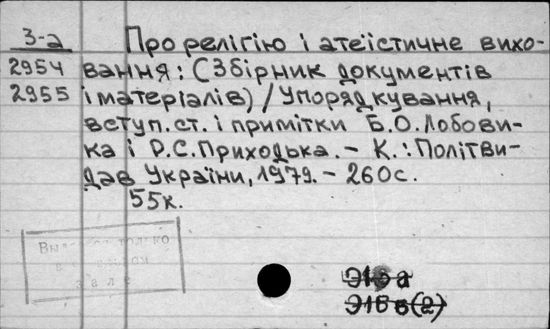 3-а
2954
2955
Про релігію і атеїстичне вихо-
вання: (Збірник документів
і матеріалів) / Упорядкування,
вступ. ст. і примітки Б.О.Лобови-
ка і Р.С.Приходька. – К.: Політви-
дав України, 1979. – 260с.
55к.
только
в
зале
Э16 а
Э16 в(2)